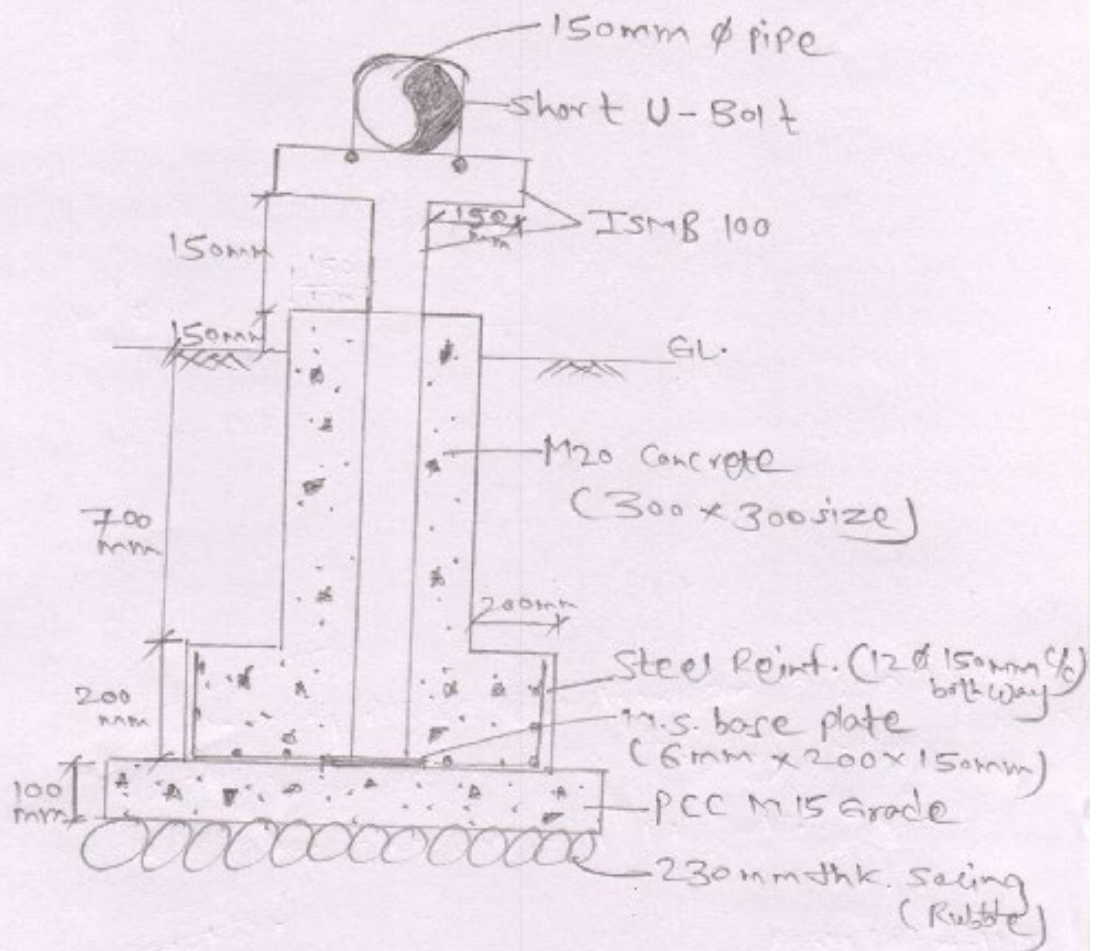 150mm ϕ pipe
short U-Bolt
150
mm
ISMB 100
150mm
150mm
GL.
M20 Concrete
(300 x 300 size)
700
mm
200mm
Steel Reinf. (12 ϕ 150mm c/c)
both way
200
mm
m.s. base plate
(6mm x 200 x 150mm)
100
mm
PCC M15 Grade
230mm thk. soling
(Rubble)